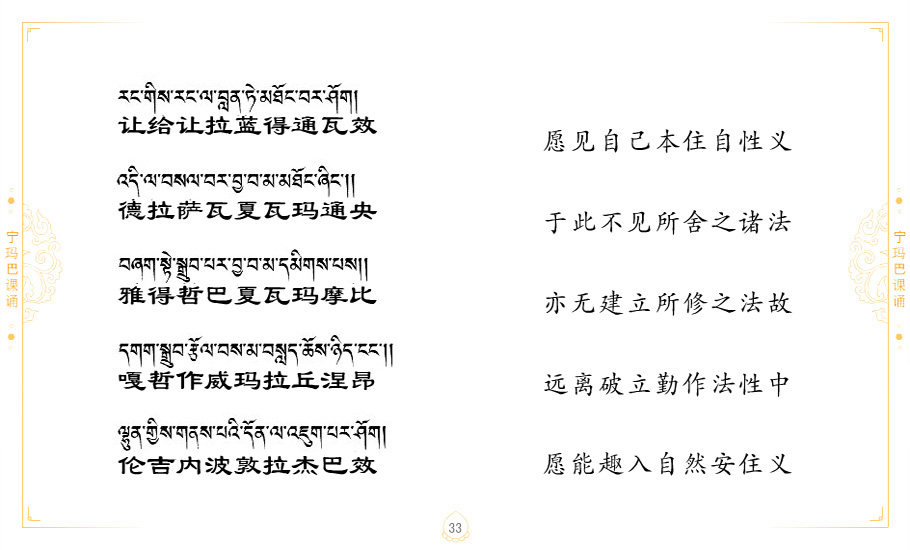 རང་གིས་རང་ལ་བླན་ཏེ་མཐོང་བར་ཤོག།
让给让拉蓝得通瓦效
愿见自己本住自性义
འདི་ལ་བསལ་བར་བྱ་བ་མ་མཐོང་ཞིང་།།
德拉萨瓦夏瓦玛通央
于此不见所舍之诸法
བཞག་སྟེ་སྒྲུབ་པར་བྱ་བ་མ་དམིགས་པས།།
雅得哲巴夏瓦玛摩比
亦无建立所修之法故
དགག་སྒྲུབ་རྩོལ་བས་མ་བསླད་ཆོས་ཉིད་ངང་།།
嘎哲作威玛拉丘涅昂
远离破立勤作法性中
ལྷུན་གྱིས་གནས་པའི་དོན་ལ་འཇུག་པར་ཤོག།
伦吉内波敦拉杰巴效
愿能趣入自然安住义
宁玛巴课诵
宁玛巴课诵
33